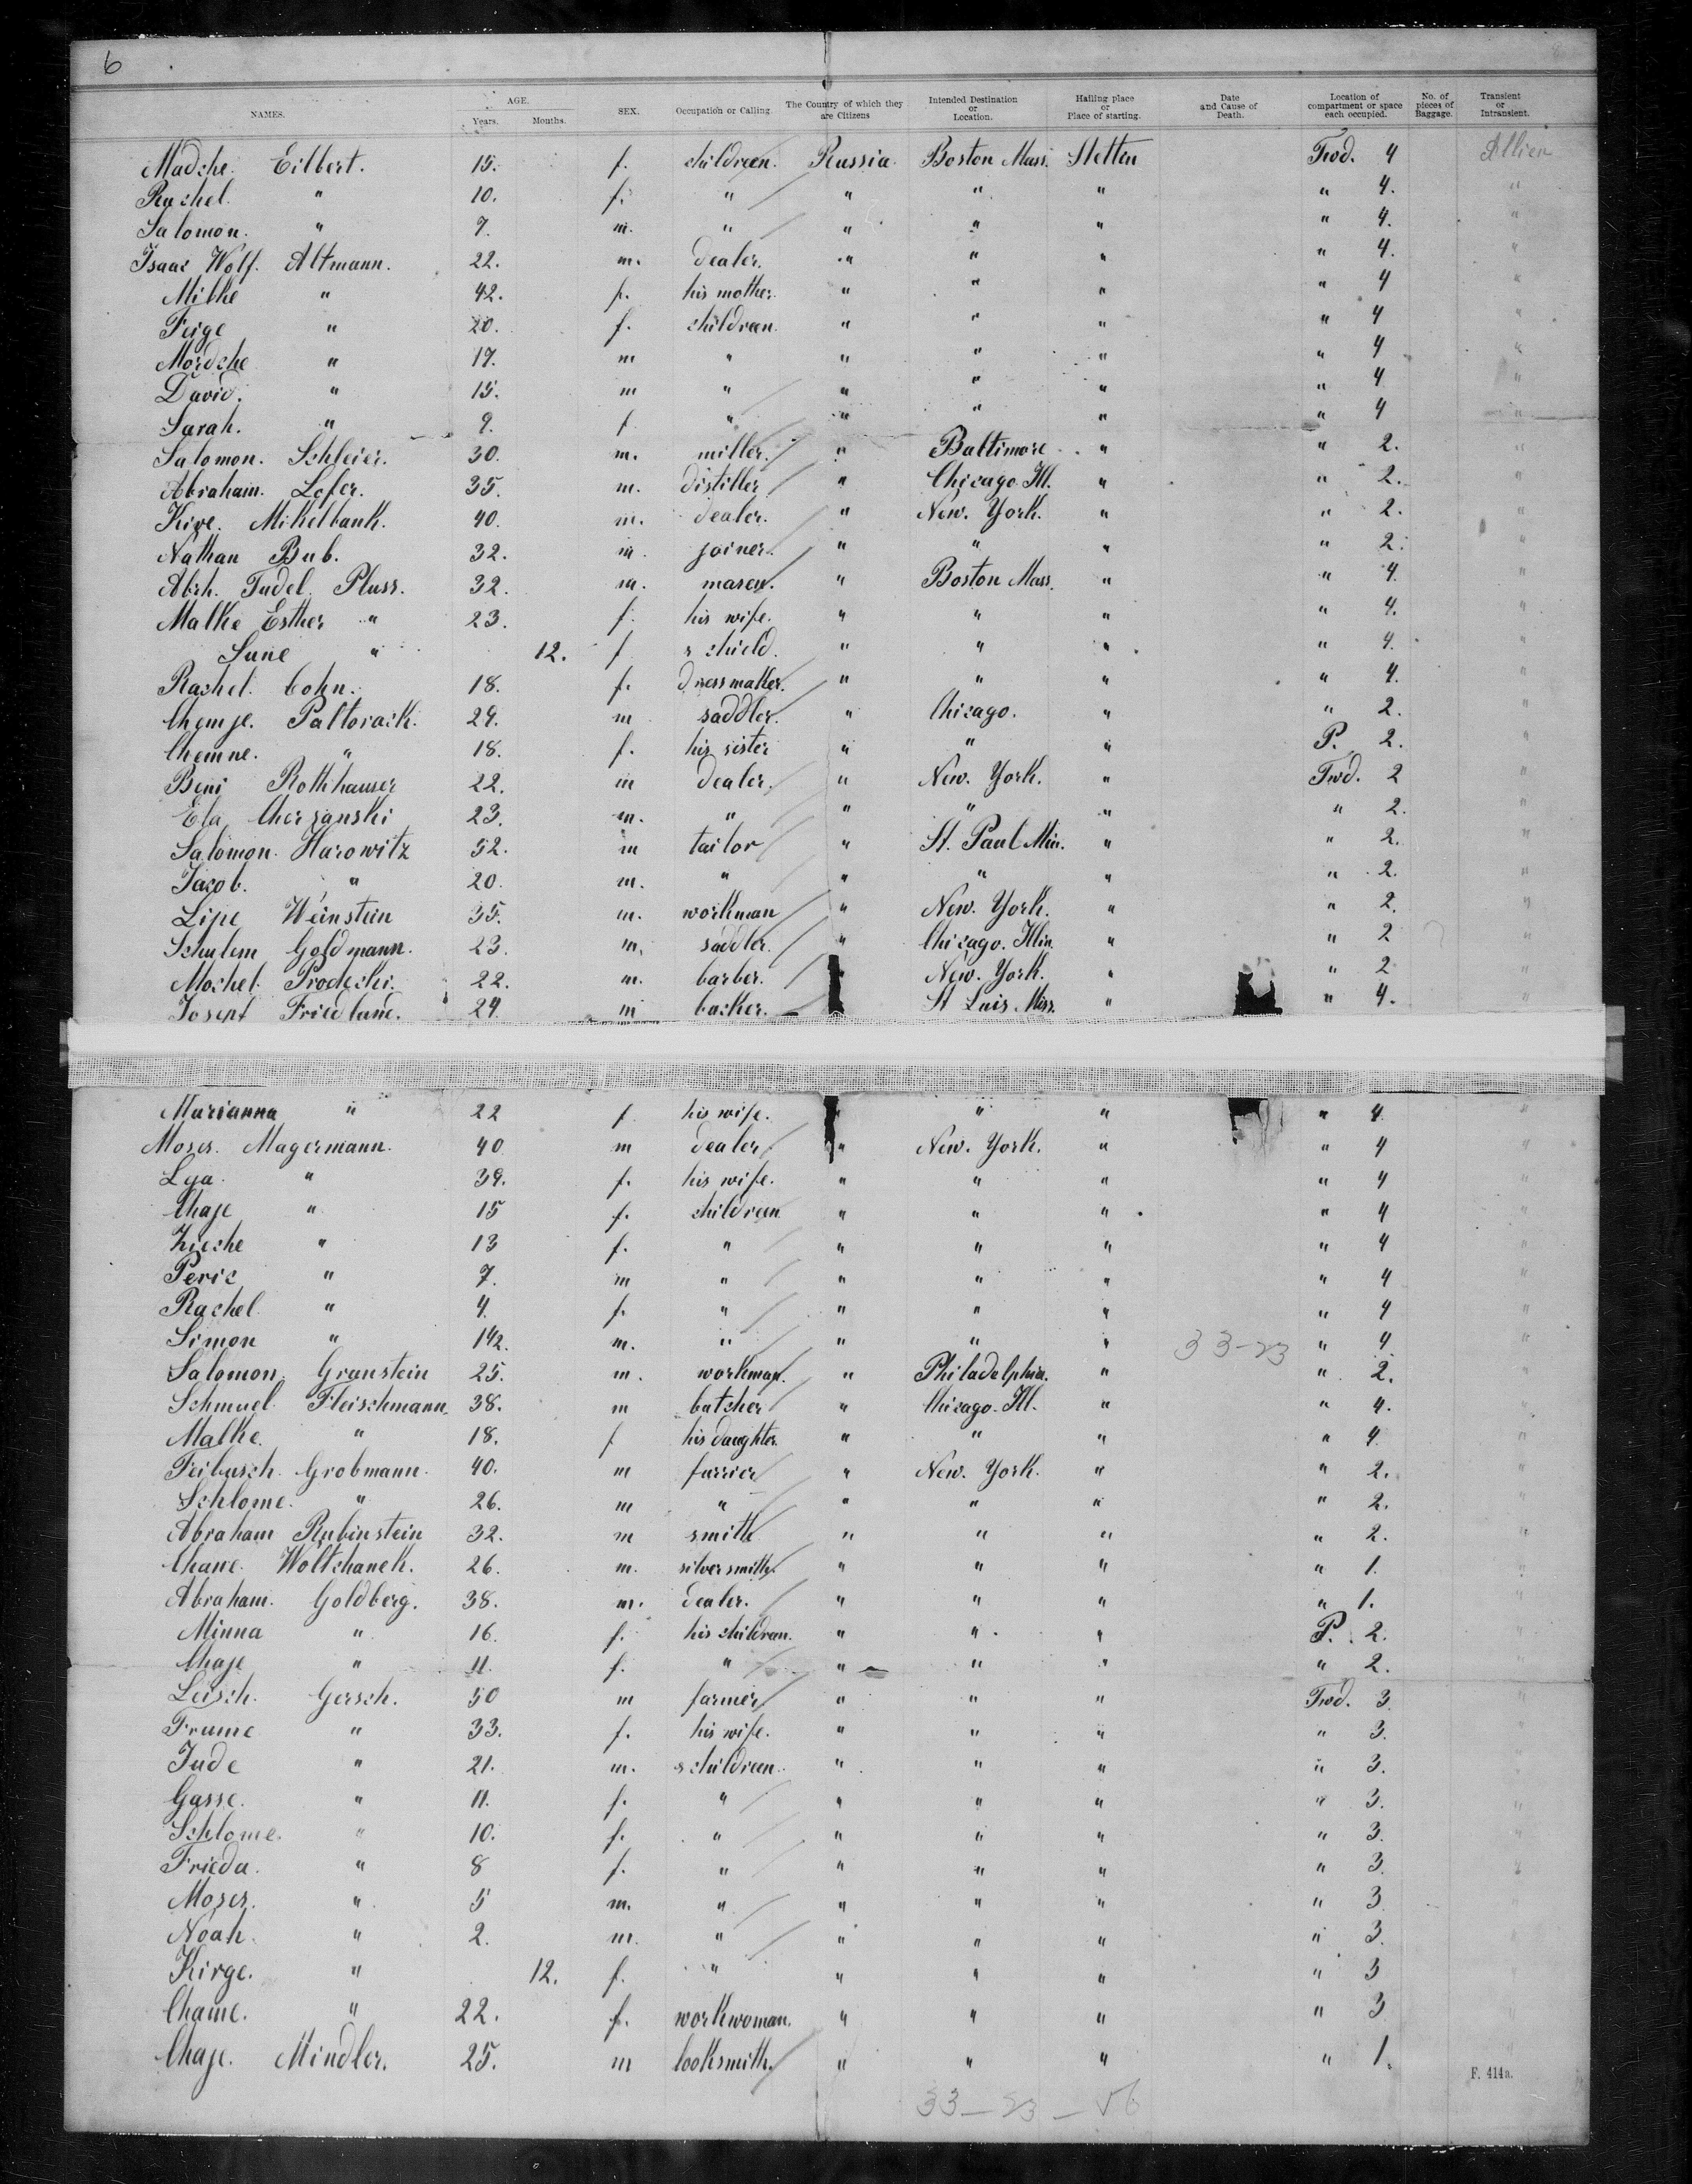 6
NAMES. AGE. Years. Months. SEX. Occupation or Calling. The Country of which they are Citizens Intended Destination or Location. Hailing place or Place of starting. Date and Cause of Death. Location of compartment or space each occupied. No. of pieces of Baggage. Transient or Intransient.
Madche. Eilbert. 15. f. childreen. Russia. Boston Mass. Stettin Twd. 4
Rachel. " 10. f. " " " " " 4. "
Salomon. " 7. m. " " " " " 4. "
Isaac Wolf. Altmann. 22. m. dealer. " " " " 4. "
Milke " 42. f. his mother. " " " " 4 "
Feige " 20. f. childreen. " " " " 4 "
Mordche " 17. m " " " " " 4 "
David. " 15. m " " " " " 4 "
Sarah. " 9. f " " " " " 4 "
Salomon. Schleier. 30. m. miller. " Baltimore " " 2. "
Abraham. Lofer. 35. m. distiller " Chicago. Ill. " " 2. "
Kive. Mikelbank. 40. m. dealer. " New. York. " " 2. "
Nathan Bub. 32. m. joiner. " " " " 2. "
Abrh. Tudel. Pluss. 32. m. mason. " Boston Mass. " " 4. "
Malke Esther " 23. f. his wife. " " " " 4. "
Sune " 12. f " schield. " " " " 4. "
Rachel. Cohn. 18. f. dressmaker. " " " " 4. "
Chemje. Paltorack. 29. m saddler. " Chicago. " " 2. "
Chemne. " 18. f. his sister " " " P. 2. "
Beni Rothhauser 22. m dealer. " New. York. " Twd. 2 "
Ela Chersanski 23. m. " " " " " 2. "
Salomon. Harowitz 52. m tailor " St. Paul Min. " " 2. "
Jacob. " 20. m. " " " " " 2. "
Lipe Weinstein 35. m. workman " New. York. " " 2. "
Schulem Goldmann. 23. m. saddler. " Chicago. Illin. " " 2 "
Moshel. Prodeski. 22. m. barber. New. York. " " 2 "
Josepf Friedland. 24 m backer. St Luis Miss. " " 4. "
Marianna " 22 f his wife. " " " " 4. "
Moses. Magermann. 40 m dealer " New. York. " " 4 "
Lya. " 39. f. his wife. " " " " 4 "
Chaje " 15 f. childreen " " " " 4 "
Zieche " 13 f. " " " " " 4 "
Peric " 7. m " " " " " 4 "
Rachel. " 4. f. " " " " " 4 "
Simon " 1 1/2. m. " " " " 33-23 " 4 "
Salomon. Granstein 25. m. workman. " Philadelphia. " " 2. "
Schmuel. Fleischmann. 38. m butcher " Chicago. Ill. " " 4. "
Malke. " 18. f his daughter. " " " " 4 "
Feibusch. Grobmann. 40. m furrier " New. York. " " 2. "
Schlome. " 26. m " " " " " 2. "
Abraham Rubinstein 32. m smith " " " " 2. "
Chane. Woltschanek. 26. m. silversmith. " " " " 1. "
Abraham. Goldberg. 38. m. dealer. " " " " 1. "
Minna " 16. f. his childreen. " " " P. 2. "
Chaje " 11. f. " " " " " 2. "
Leisch. Gersch. 50 m farmer " " " Twd. 3 "
Frume " 33. f. his wife. " " " " 3. "
Jude " 21. m. s childreen. " " " " 3. "
Gasse. " 11. f. " " " " " 3. "
Schlome. " 10. f. " " " " " 3. "
Frieda. " 8 f. " " " " " 3. "
Moses. " 5 m. " " " " " 3 "
Noah. " 2. m. " " " " " 3. "
Kirge. " 12. f. " " " " " 3 "
Chaine. " 22. f. workwoman. " " " " 3 "
Chaje. Mindler. 25. m looksmith. " " " " 1.
F. 414a.
33-23-56